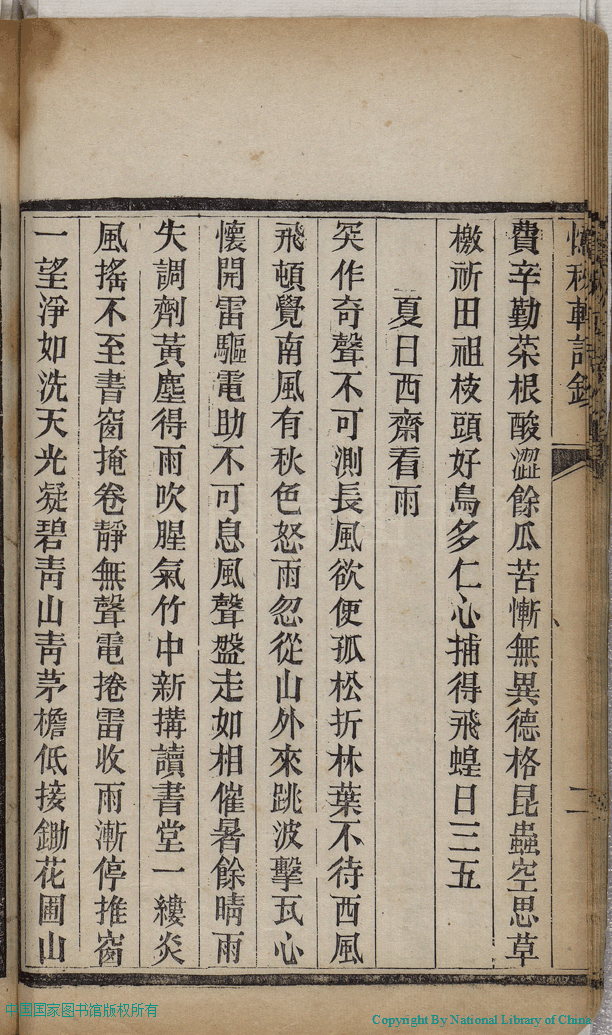 費辛勤菜根酸澀餘瓜苦慚無異德格昆蟲空思草
檄祈田祖枝頭好鳥多仁心捕得飛蝗日三五
夏日西齋看雨
突作奇聲不可測長風欲使孤松折林葉不待西風
飛頓覺南風有秋色怒雨忽從山外來跳波擊瓦心
懷開雷驅電助不可息風聲盤走如相催暑餘晴雨
失調劑黃塵得雨吹腥氣竹中新搆讀書堂一縷炎
風搖不至書窗掩卷靜無聲電捲雷收雨漸停推窗
一望淨如洗天光凝碧靑山靑茅檐低接鋤花圃山
二
中国国家图书馆版权所有
Copyright By National Library of China